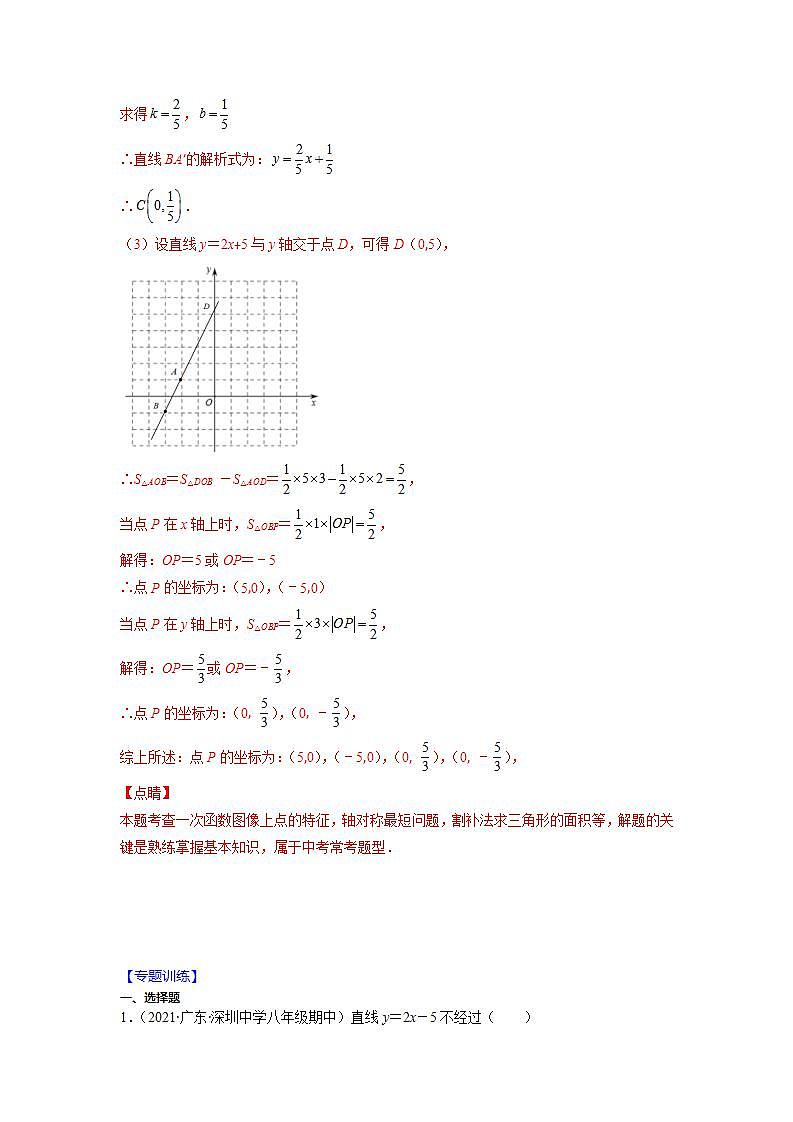 求得 k=2/5，b=1/5
∴直线 BA'的解析式为：y=2/5x+1/5
∴C(0,1/5)．
（3）设直线 y＝2x+5 与 y 轴交于点 D，可得 D（0,5），
y
D
A
B
O
x
∴S△AOB＝S△DOB －S△AOD＝1/2×5×3−1/2×5×2=5/2，
当点 P 在 x 轴上时，S△OBP＝1/2×1×|OP|=5/2，
解得：OP＝5 或 OP＝﹣5
∴点 P 的坐标为：（5,0），（﹣5,0）
当点 P 在 y 轴上时，S△OBP＝1/2×3×|OP|=5/2，
解得：OP＝5/3或 OP＝﹣5/3，
∴点 P 的坐标为：（0, 5/3），（0, ﹣5/3），
综上所述：点 P 的坐标为：（5,0），（﹣5,0），（0, 5/3），（0, ﹣5/3），
【点睛】
本题考查一次函数图像上点的特征，轴对称最短问题，割补法求三角形的面积等，解题的关
键是熟练掌握基本知识，属于中考常考题型．
【专题训练】
一、选择题
1．（2021·广东·深圳中学八年级期中）直线 y＝2x－5 不经过（　　）